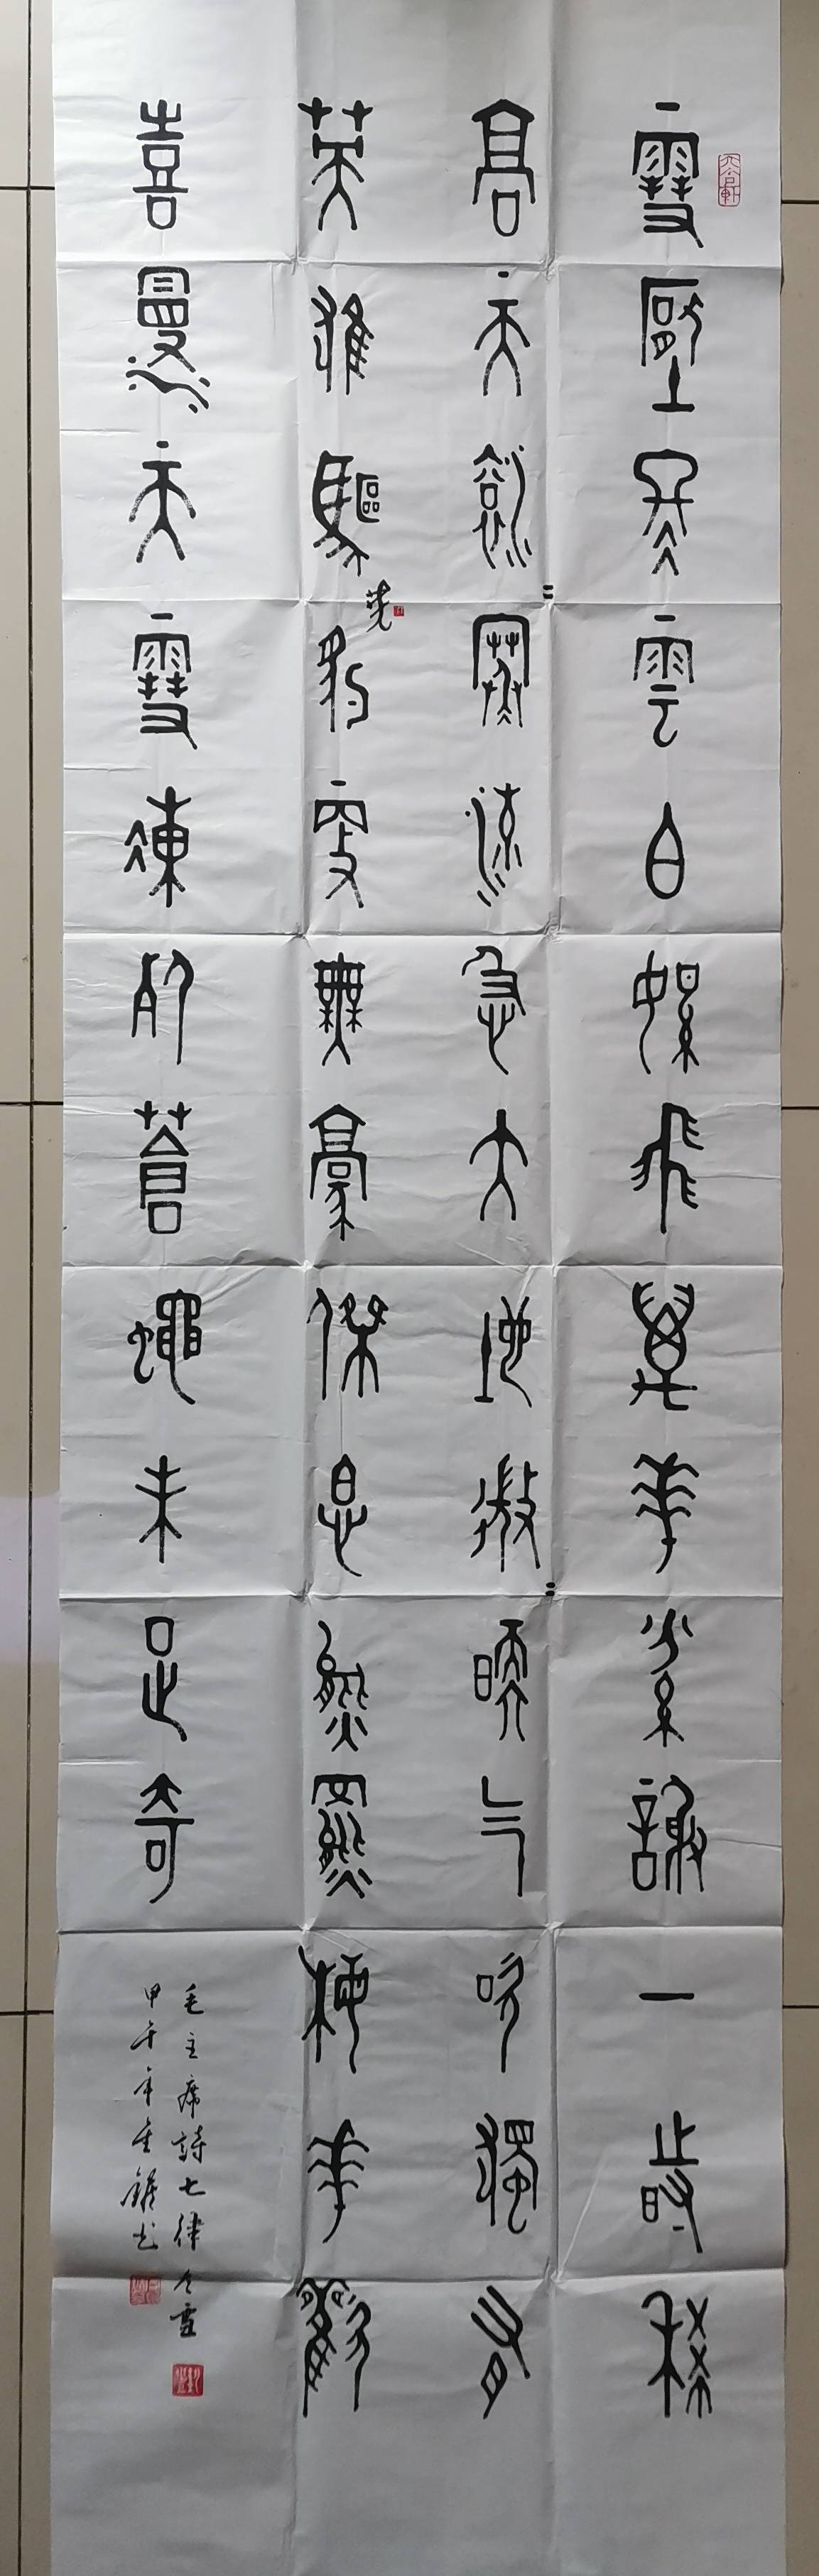 雪壓冬雲白絮飛萬華紛謝一時稀
高天滾〓寒流急大地微〓暖气吹獨有
英雄驅虎豹更無豪傑怕熊羆梅華歡
喜漫天雪凍死蒼蠅未足奇
毛主席詩七律冬雲
甲午年